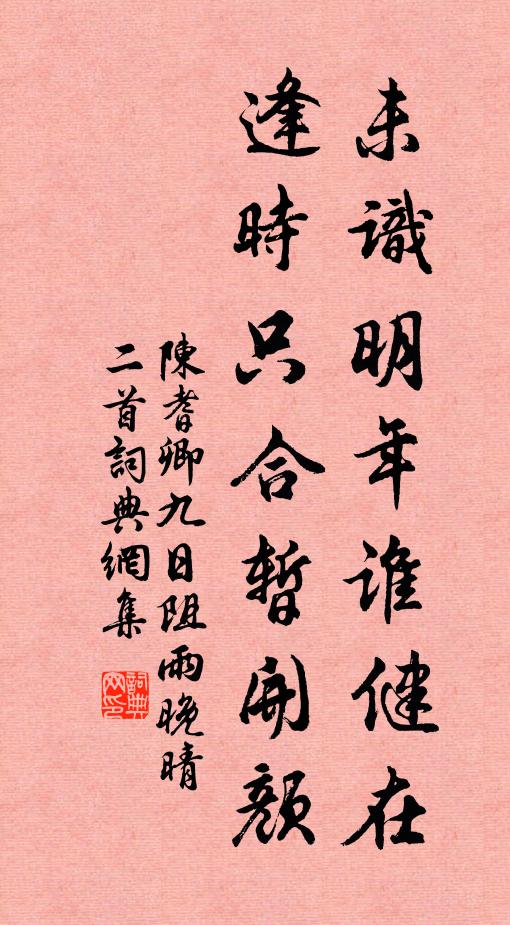 未識明年誰健在
逢時只合暫開顏
陳耆卿九日阻雨晚晴
二首詞典網集
詞典
網印